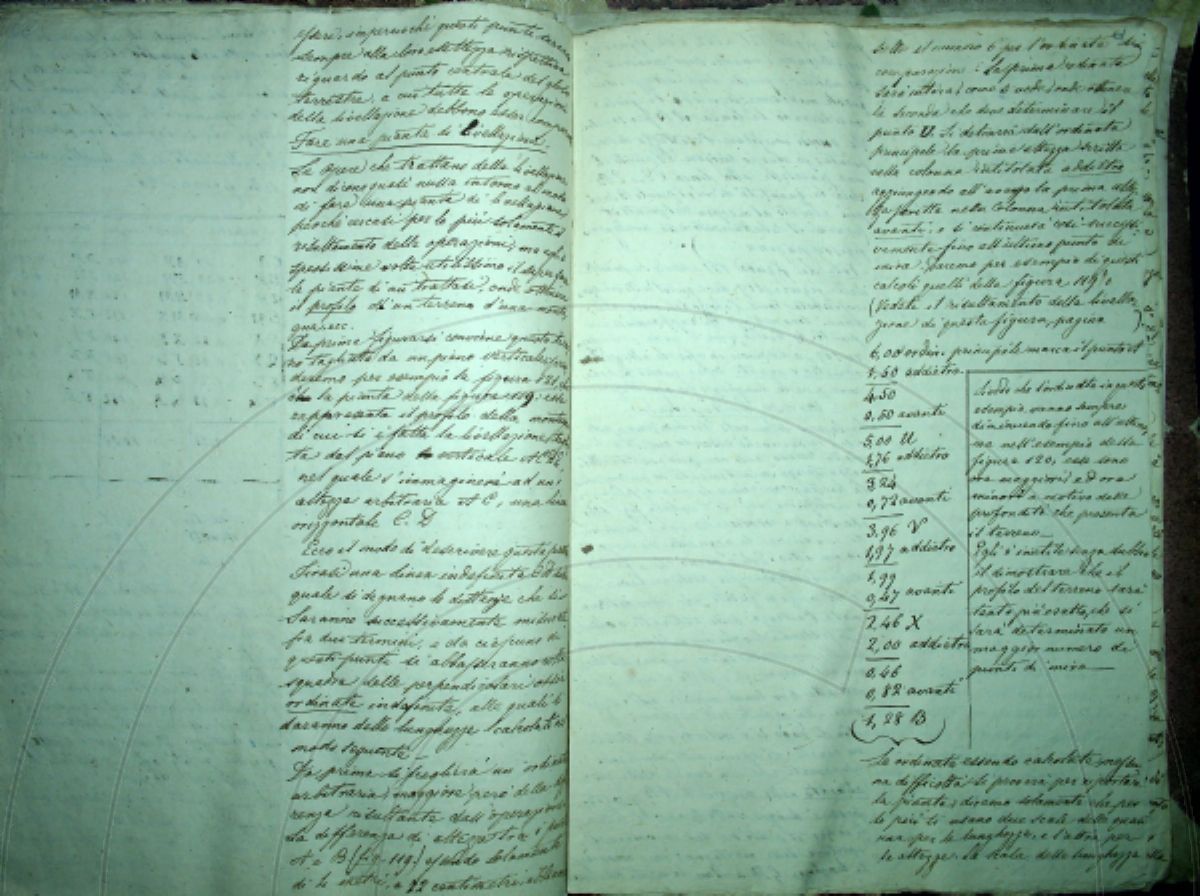 sempre alla loro altezza rispettiva
riguardo al punto centrale del globo
terrestre, a cui tutte le operazioni
della livellazione debbono esser
Fare una pianta di livellazione
Le opere che trattano della livellazione
non dicono quasi nulla intorno al modo
di fare una pianta di livellazione
perchè usasi per lo più solamente il
risultamento delle operazioni; ma egli è
spessissime volte utilissimo il saper fare
le piante di un trattare, onde
il profilo di un terreno d'una monta
gna, ecc.
La prima figura si conviene questo
no tagliato da un piano verticale
daremo per esempio la figura 121
che la pianta della figura 119; essa
rappresenta il profilo della montagna
di cui si è fatta la livellazione
ta dal piano verticale
nel quale s'immaginerà ad un'
altezza arbitraria A C, una linea
orizzontale C. D
Ecco il modo di descrivere questa pianta
Tirasi una linea indefinita C D sulla
quale si segnano le distanze che si
saranno successivamente misurate
fra due termini, e da ciascuno di
questi punti si abbasseranno colla
squadra delle perpendicolari
ordinate indefinite, alle quali si
daranno delle lunghezze calcolate nel
modo seguente.
Da prima si sceglierà un'ordinata
arbitraria, maggiore però della
renza risultante dall'operazione
La differenza di altezza tra i punti
A e B (fig. 119) essendo solamente
di 4 metri, e 72 centimetri,
il numero 6 per l'ordinata di
comparazione: La prima ordinata
sarà intera, come si vede; onde ottenere
la seconda che deve determinare il
punto U. Si detrarrà dall'ordinata
principale la prima altezza scritta
nella colonna intitolata addietro
aggiungendo all'avanzo la prima altez
za scritta nella colonna intitolata
avanti; e si continuerà così succes
vamente fino all'ultimo punto di
mira. Daremo per esempio di questi
calcoli quelli della figura 119
(Vedete il risultamento della livella
zione di questa figura, pagina )
6,00 ordin. principale marca il punto A
1,50 addietro
4,50
0,50 avanti
5,00 U
1,76 addietro
3,24
0,72 avanti
3,96 V
1,97 addietro
1,99
0,47 avanti
2,46 X
2,00 addietro
0,46
0,82 avanti
1,28 B
che l'ordinate in questo
esempio vanno sempre
diminuendo fino all'ultima
ma nell'esempio della
figura 120, esse sono
ora maggiori ed ora
minori a motivo delle
profondità che presenta
il terreno.
Egli è inutile senza dubbio
il dimostrare che il
profilo del terreno sarà
tanto più esatto, che si
sarà determinato un
maggior numero di
punti di mira
Le ordinate essendo calcolate, nessu
na difficoltà si proverà per riportare
la pianta; diremo solamente che per
lo più si usano due scale delle quali
una per le lunghezze, e l'altra per
le altezze. La scala delle lunghezze